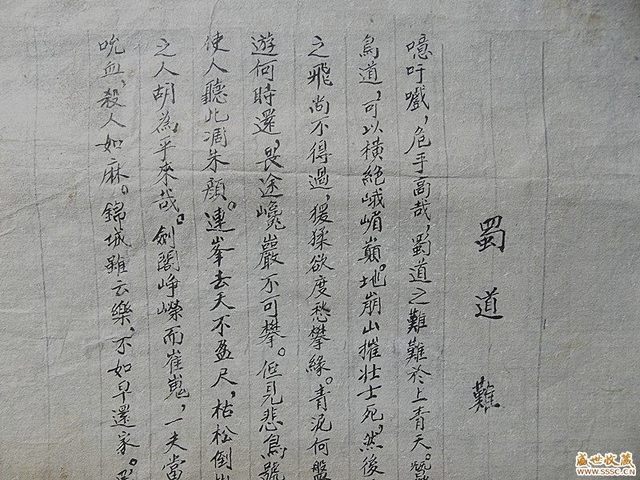 蜀道難
噫吁嚱，危乎高哉，蜀道之難難於上青天。
鳥道，可以橫絕峨嵋巔。地崩山摧壯士死，然後
之飛尚不得過，猨猱欲度愁攀緣。青泥何盤
遊何時還，畏途巉巖不可攀。但見悲鳥號
使人聽此凋朱顏。連峯去天不盈尺，枯松倒
之人胡為乎來哉。劍閣崢嶸而崔嵬，一夫當
吮血，殺人如麻。錦城雖云樂，不如早還家。
盛世收藏
WWW.SSSC.CN